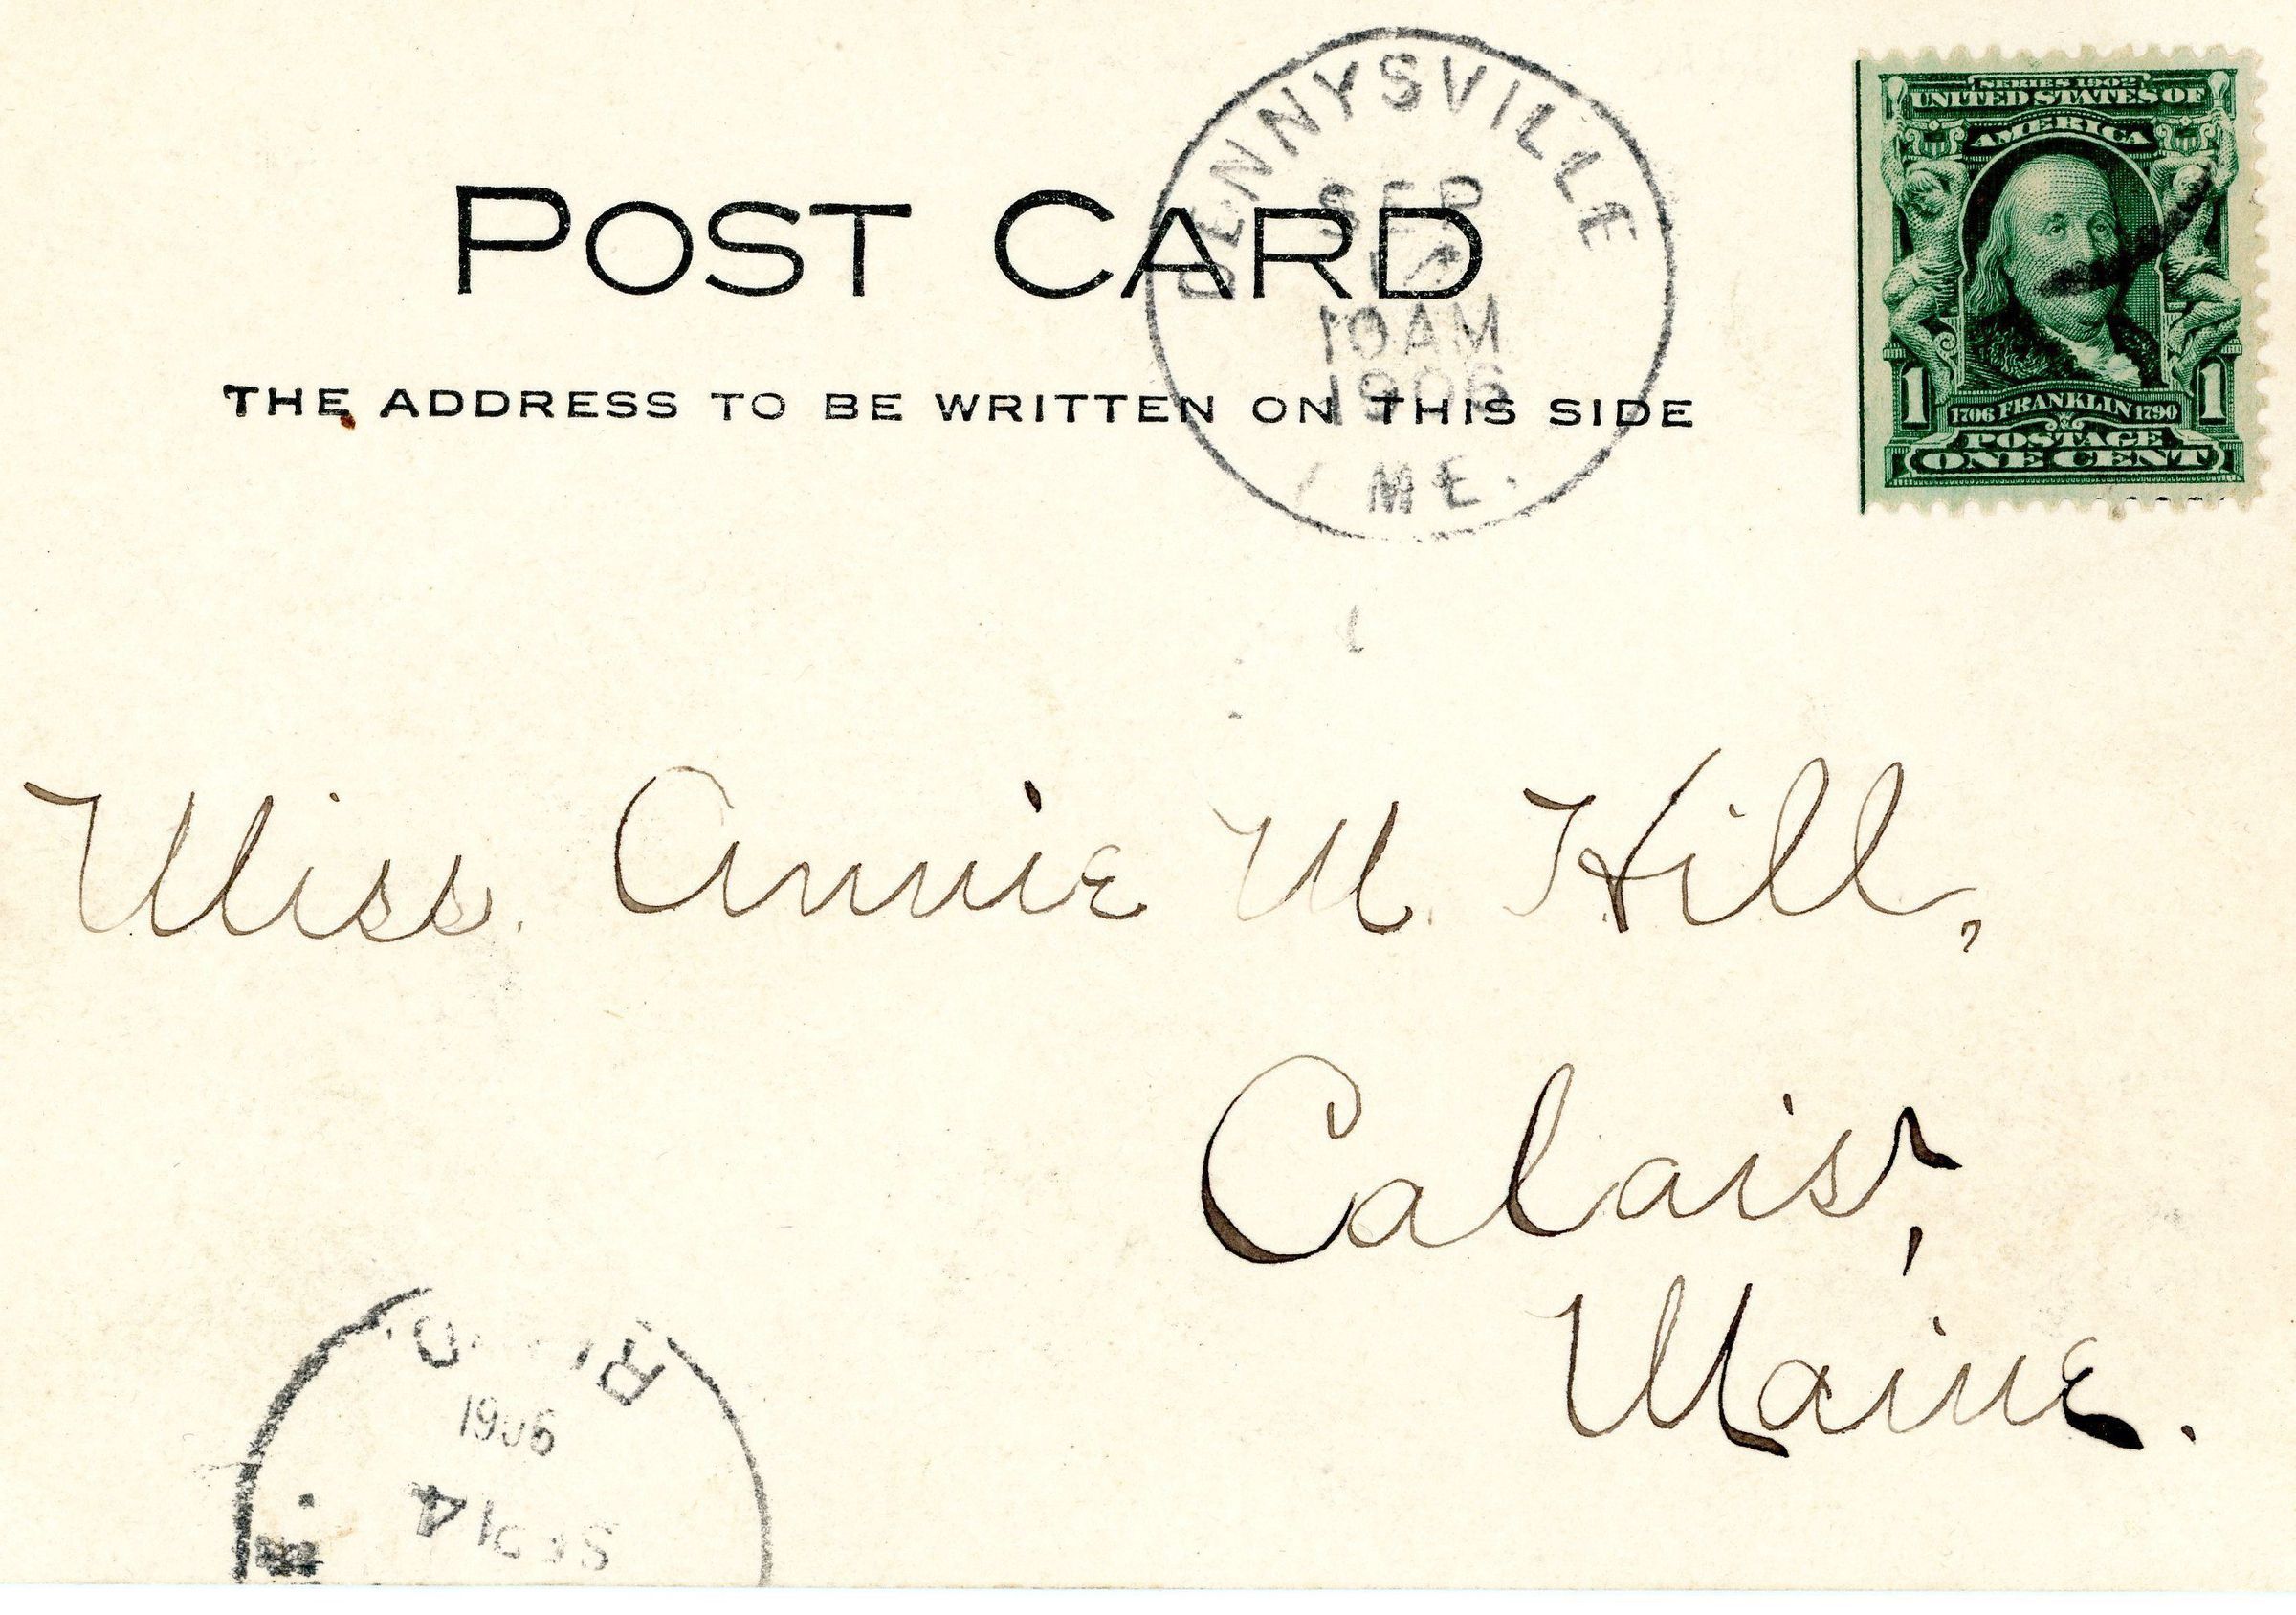 POST CARD
THE ADDRESS TO BE WRITTEN ON THIS SIDE
DENNYSVILLE
SEP
10AM
1906
ME.
SERIES 1902
UNITED STATES OF
AMERICA
1 1706 FRANKLIN 1790 1
POSTAGE
ONE CENT
Miss. Annie M. Hill,
Calais,
Maine.
1906